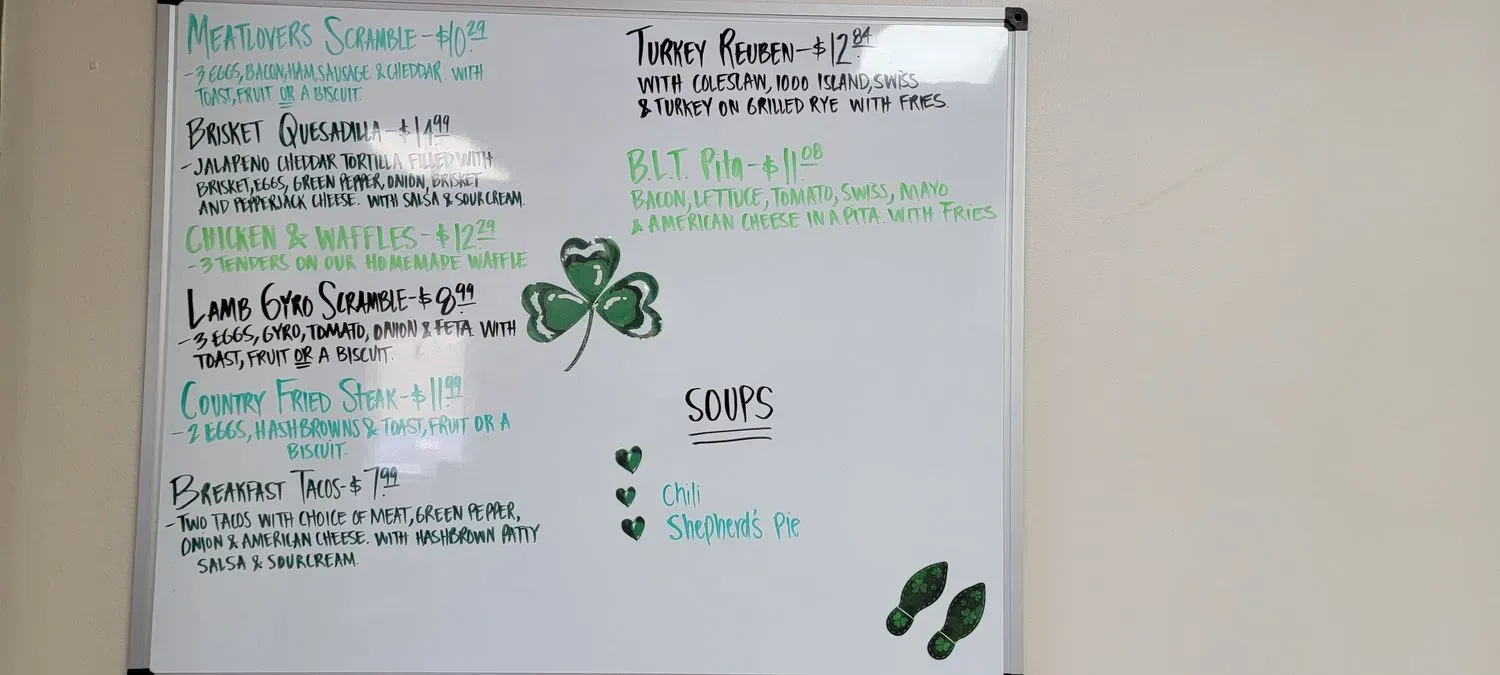 MEATLOVERS SCRAMBLE-$10.29
-3 EGGS, BACON, HAM, SAUSAGE & CHEDDAR. WITH
TOAST, FRUIT OR A BISCUIT.
BRISKET QUESADILLA-$14.99
-JALAPENO CHEDDAR TORTILLA FILLED WITH
BRISKET, EGGS, GREEN PEPPER, ONION, BRISKET
AND PEPPERJACK CHEESE. WITH SALSA & SOURCREAM.
CHICKEN & WAFFLES-$12.29
-3 TENDERS ON OUR HOMEMADE WAFFLE
LAMB GYRO SCRAMBLE-$8.99
-3 EGGS, GYRO, TOMATO, ONION & FETA. WITH
TOAST, FRUIT OR A BISCUIT.
COUNTRY FRIED STEAK-$11.99
-2 EGGS, HASHBROWNS & TOAST, FRUIT OR A
BISCUIT.
BREAKFAST TACOS-$7.99
-TWO TACOS WITH CHOICE OF MEAT, GREEN PEPPER,
ONION & AMERICAN CHEESE. WITH HASHBROWN PATTY
SALSA & SOURCREAM.
TURKEY REUBEN-$12.84
WITH COLESLAW, 1000 ISLAND, SWISS
& TURKEY ON GRILLED RYE WITH FRIES.
B.L.T. Pita-$11.08
BACON, LETTUCE, TOMATO, SWISS, MAYO
& AMERICAN CHEESE IN A PITA. WITH FRIES
SOUPS
Chili
Shepherd's Pie